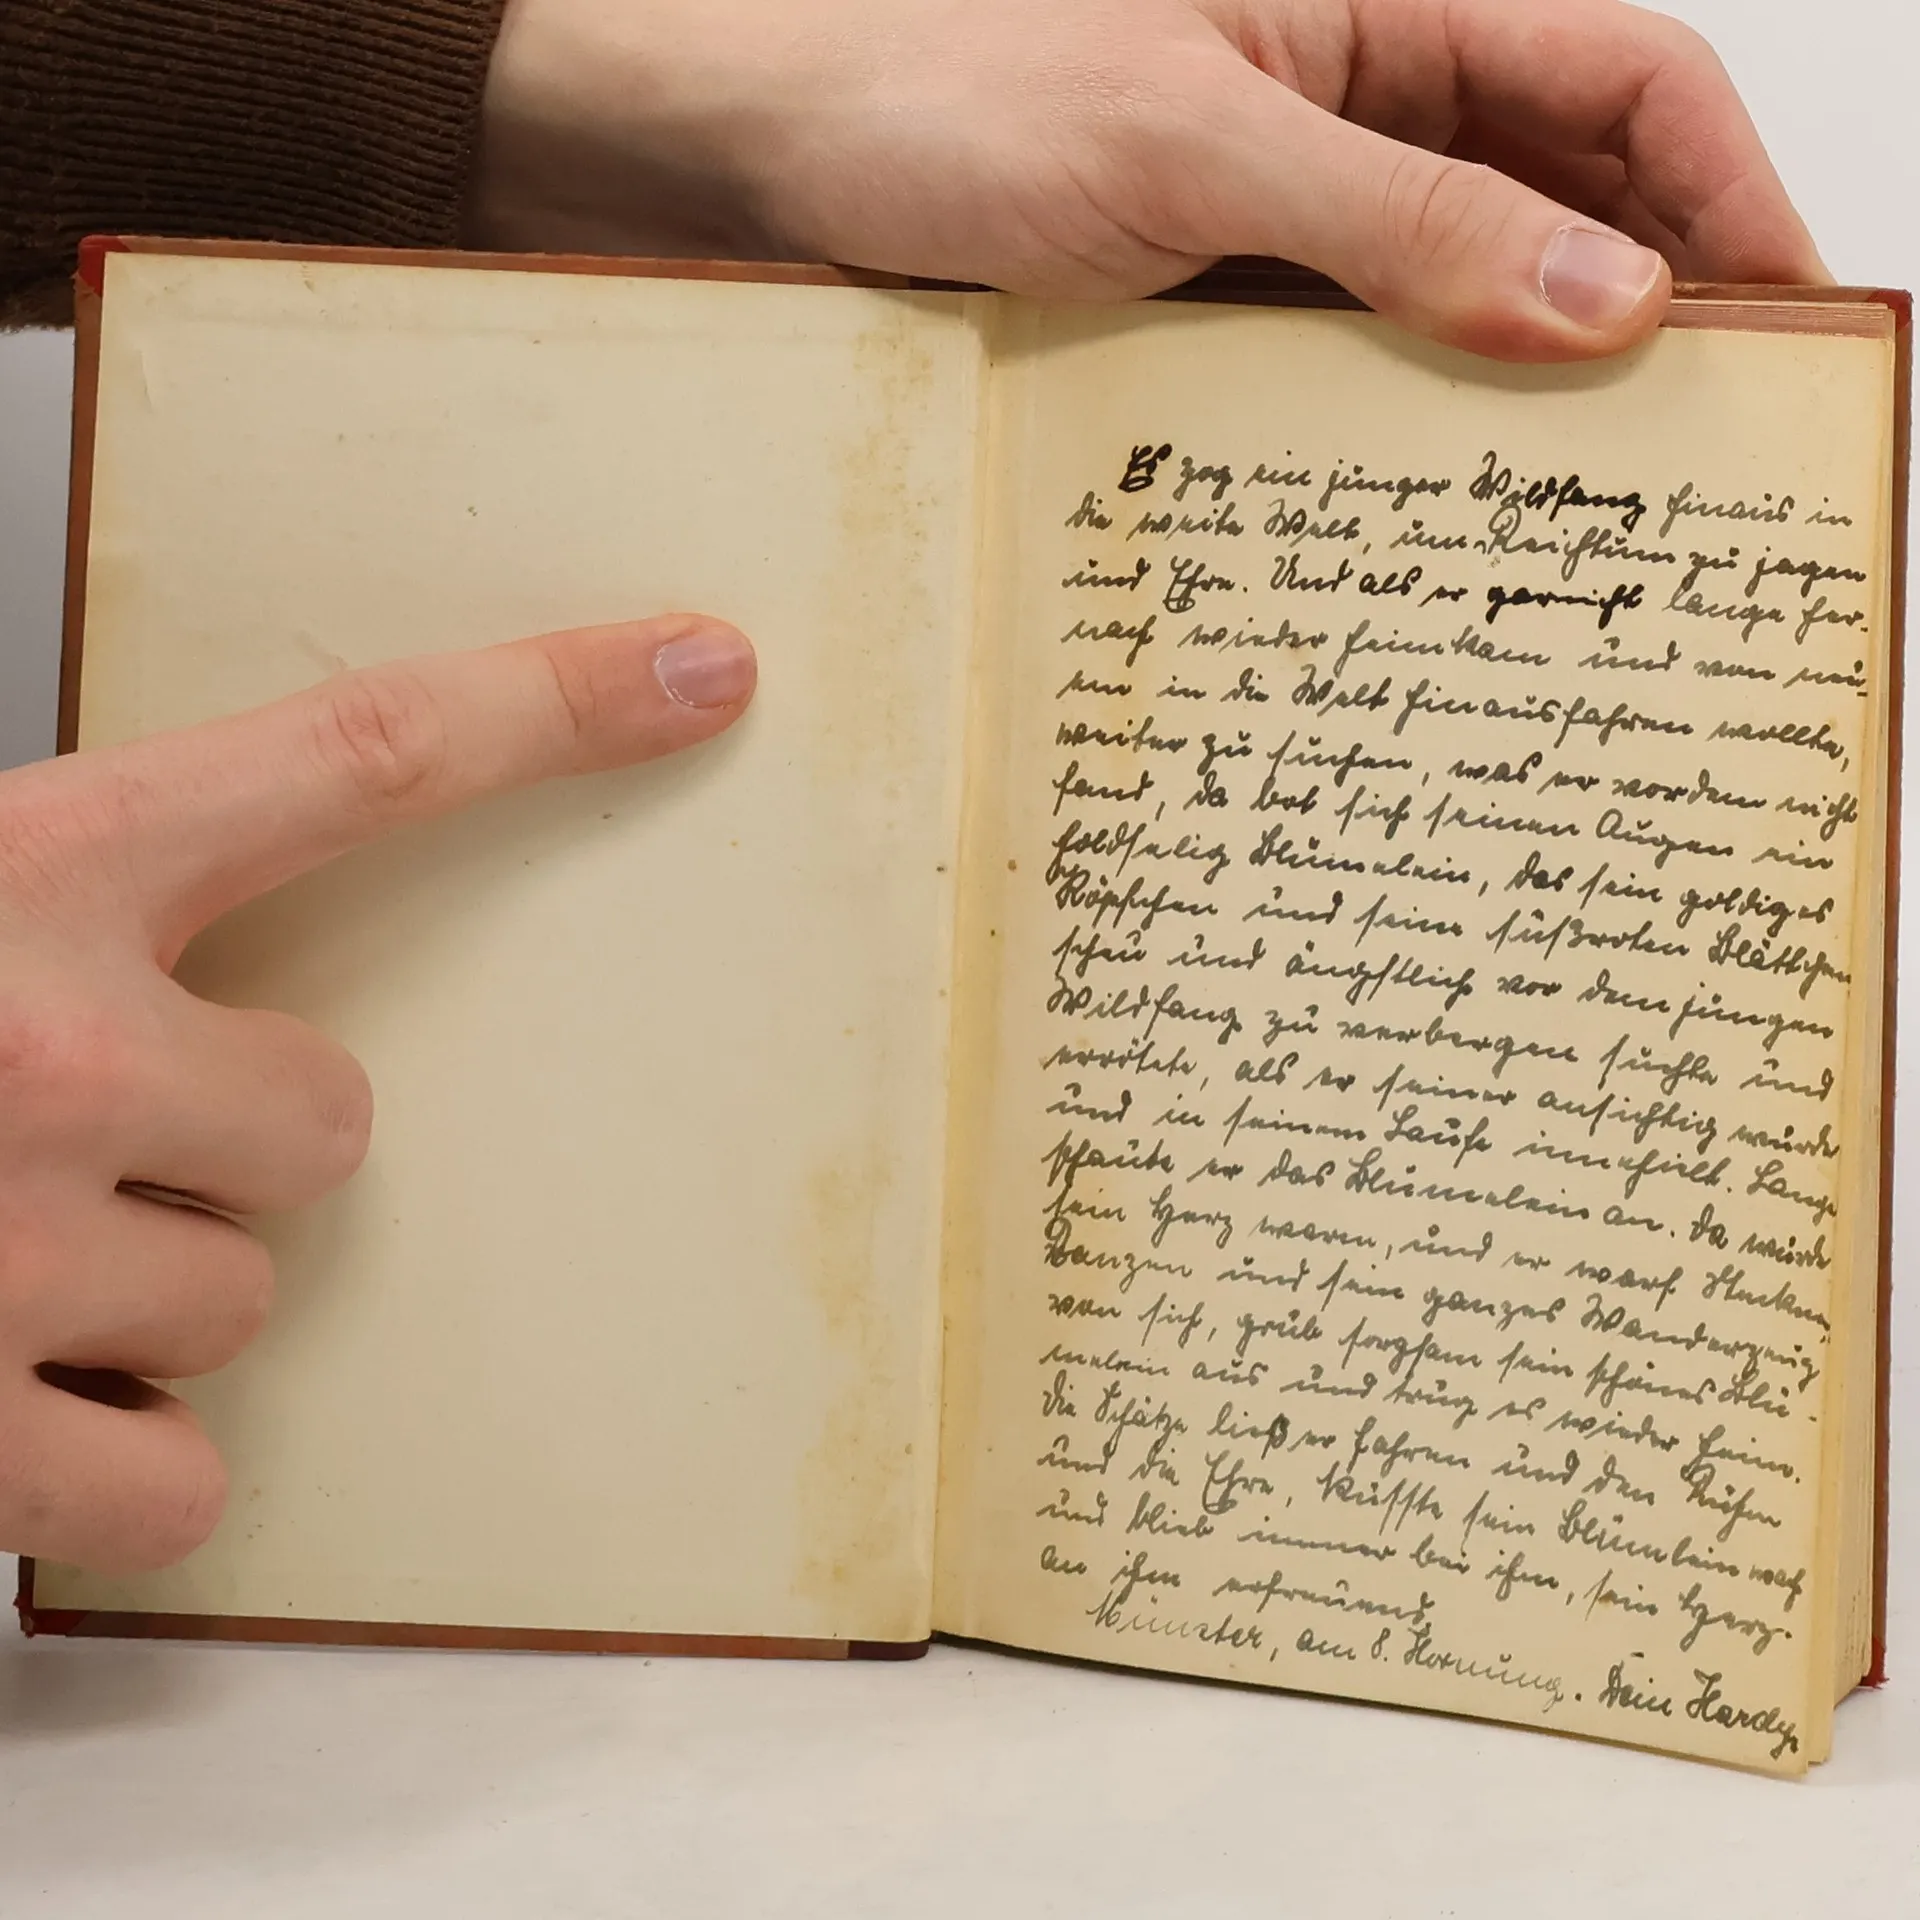 Es zog ein junger Wildfang hinaus in
die weite Welt, um Reichtum zu jagen
und Ehre. Und als er garnicht lange her-
nach wieder heimkam und von neu-
em in die Welt hinausfahren wollte,
weiter zu suchen, was er vordem nicht
fand, da bot sich seinen Augen ein
holdselig Blümelein, das sein goldiges
Köpfchen und seine süßroten Blättchen
scheu und ängstlich vor dem jungen
Wildfang zu verbergen suchte und
errötete, als er seiner ansichtig wurde
und in seinem Laufe innehielt. Lange
schaute er das Blümelein an. Da wurde
sein Herz warm, und er warf Stecken,
Ranzen und sein ganzes Wanderzeug
von sich, grub sorgsam sein schönes Blü-
melein aus und trug es wieder heim.
Die Schätze ließ er fahren und den Ruhm
und die Ehre, küsste sein Blümlein wach
und blieb immer bei ihm, sein Herz
an ihm erfreuend.
Münster, am 8. Hornung. Dein Hardy.